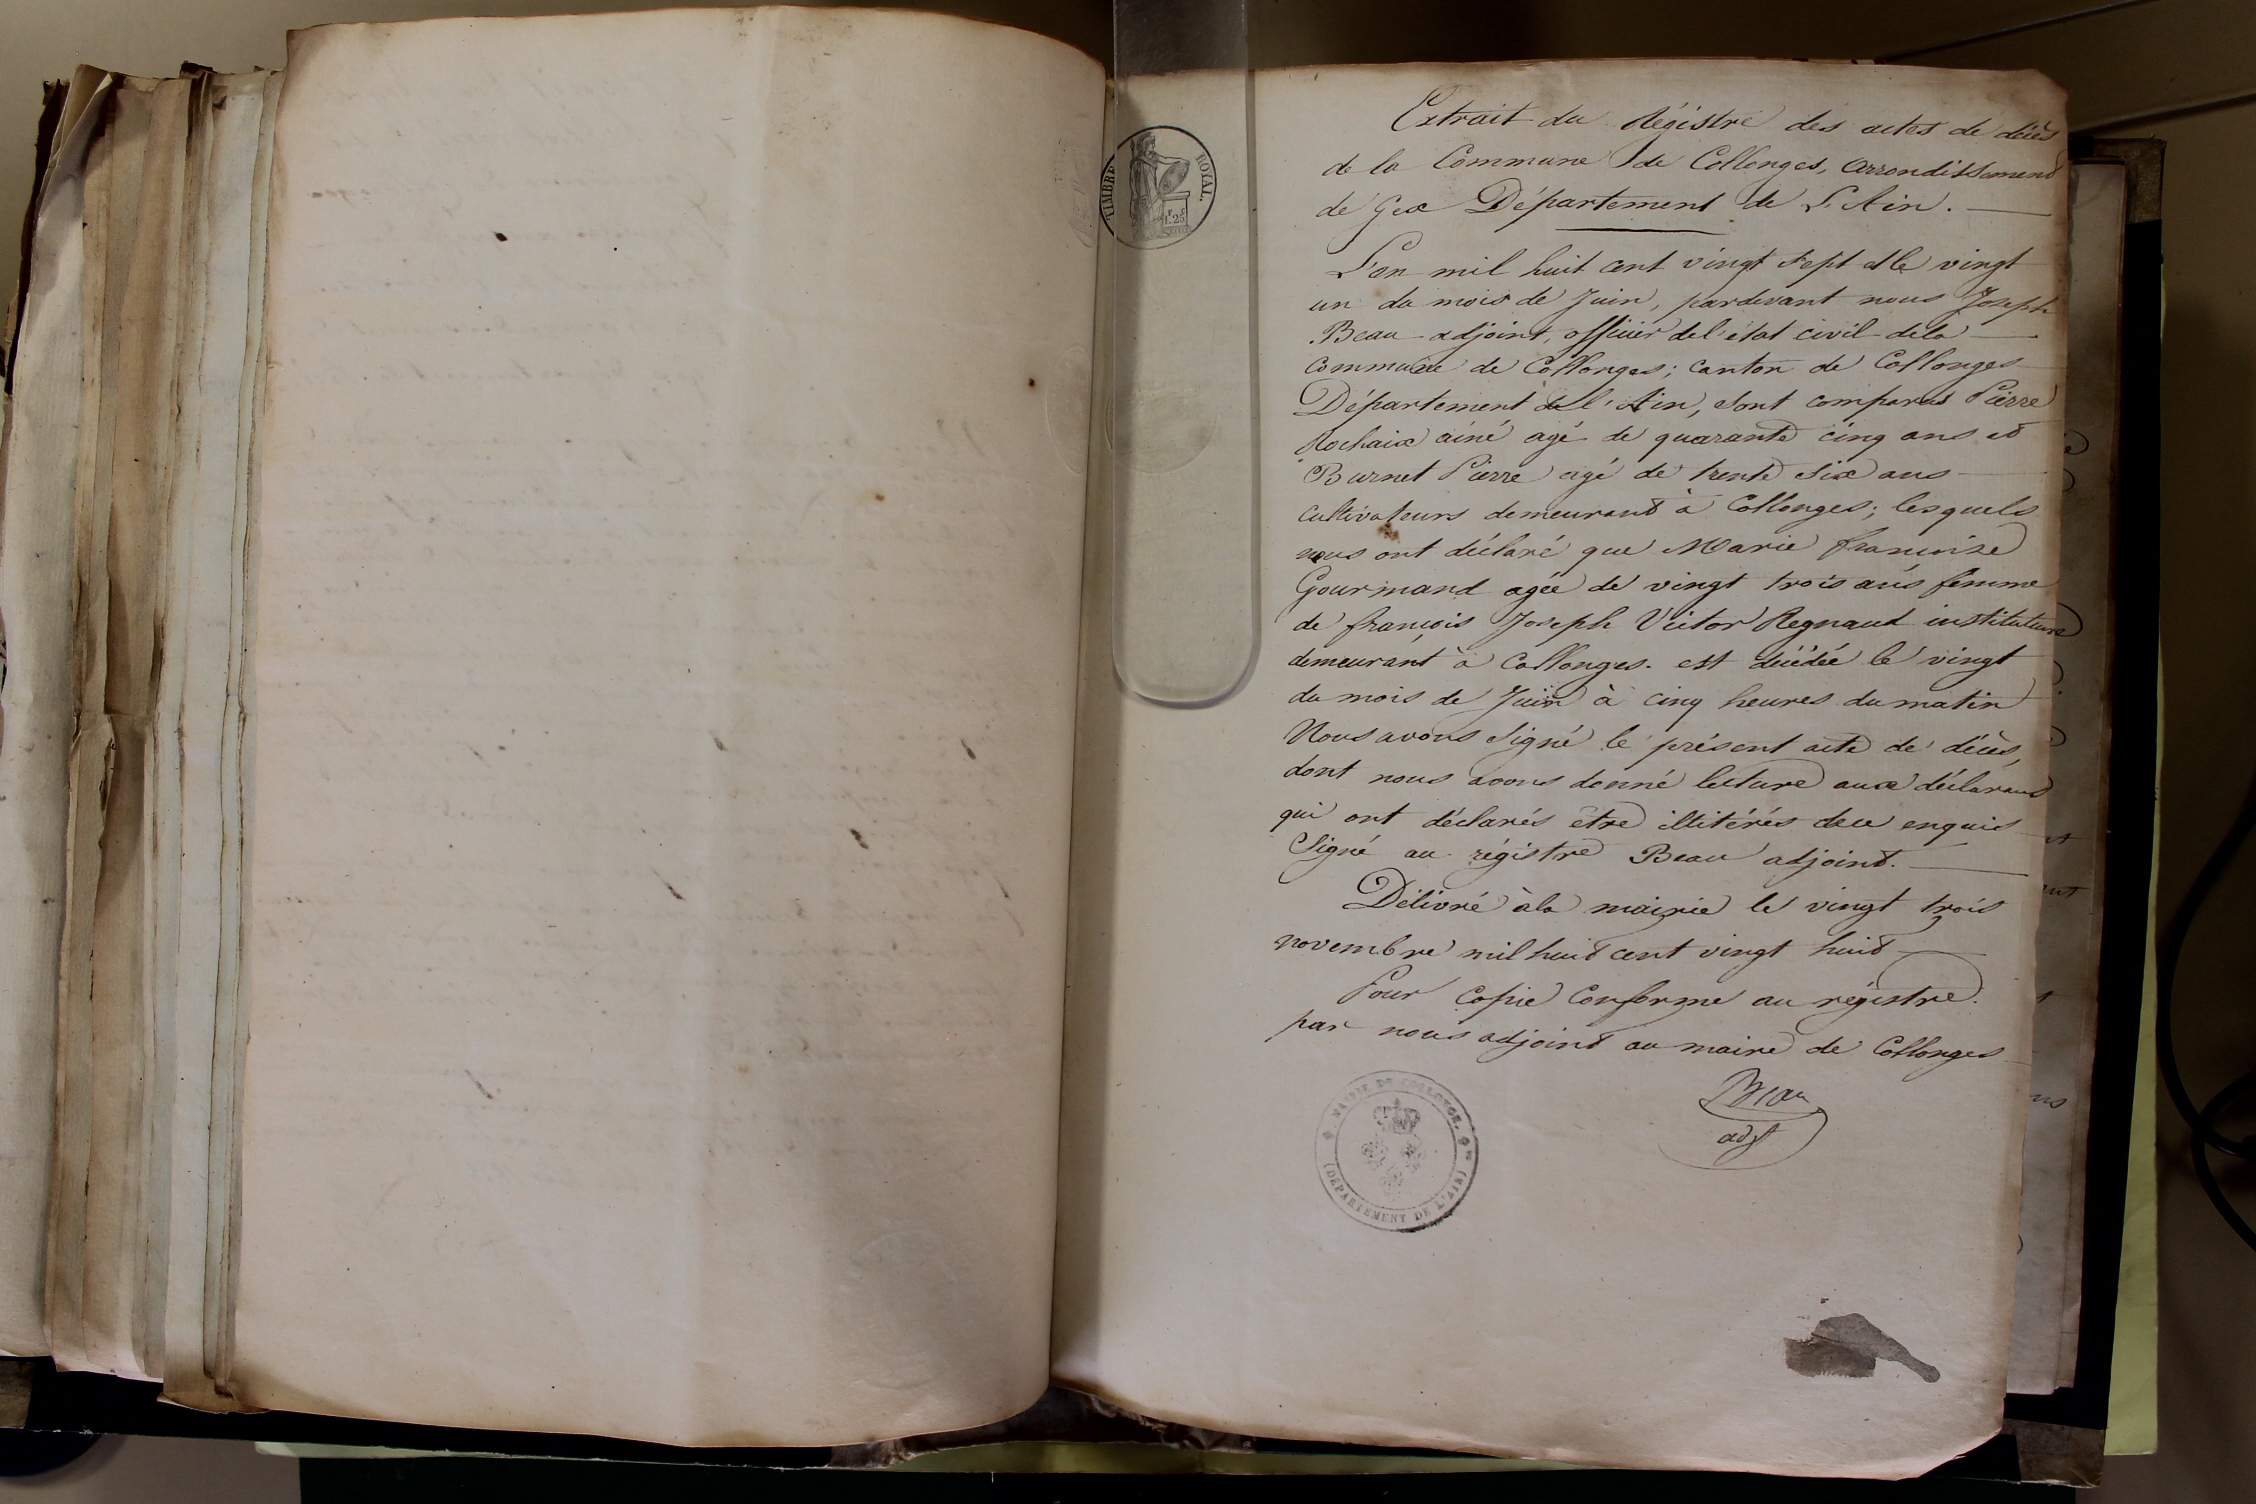 TIMBRE ROYAL.
1.F 25.C
Extrait du Régistre des actes de décès
de la Commune de Collonges, arrondissement
de Gex Département de L'Ain.
L'an mil huit cent vingt sept et le vingt
un du mois de Juin, pardevant nous Joseph
Beau adjoint, officier de l'état civil dela
commune de Collonges; canton de Collonges
Département de l'Ain, sont comparus Pierre
Rochaix ainé agé de quarante cinq ans et
Burnet Pierre agé de trente six ans
cultivateurs demeurant à Collonges; lesquels
nous ont déclaré que Marie françoise
Gourmand agée de vingt trois ans femme
de françois Joseph Victor Regnaud instituteur
demeurant à Collonges. est décédée le vingt
du mois de Juin à cinq heures du matin
Nous avons signé le présent acte de décès,
dont nous avons donné lecture aux déclarans
qui ont déclarés etre illitérés de ce enquis
Signé au régistre Beau adjoint.
Délivré àla mairie le vingt trois
novembre mil huit cent vingt huit
Pour Copie Conforme au régistre.
par nous adjoint au maire de Collonges
Beau
adjt
MAIRIE DE COLLONGE,
(DÉPARTEMENT DE L'AIN)